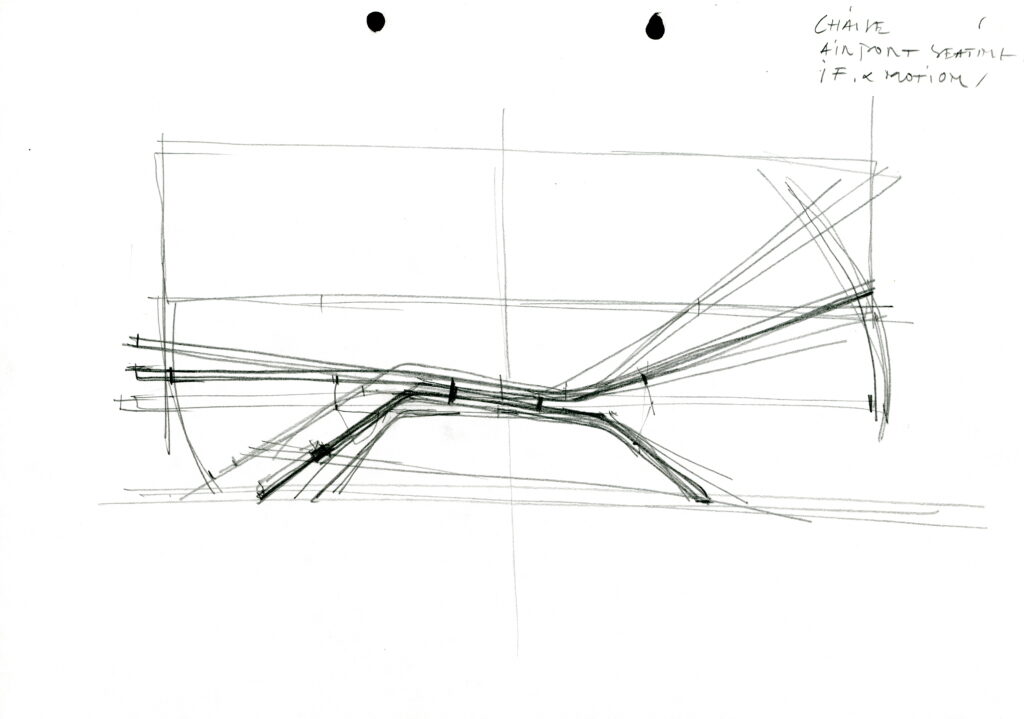 CHAISE
AIRPORT SEATING
IF. & MOTION /